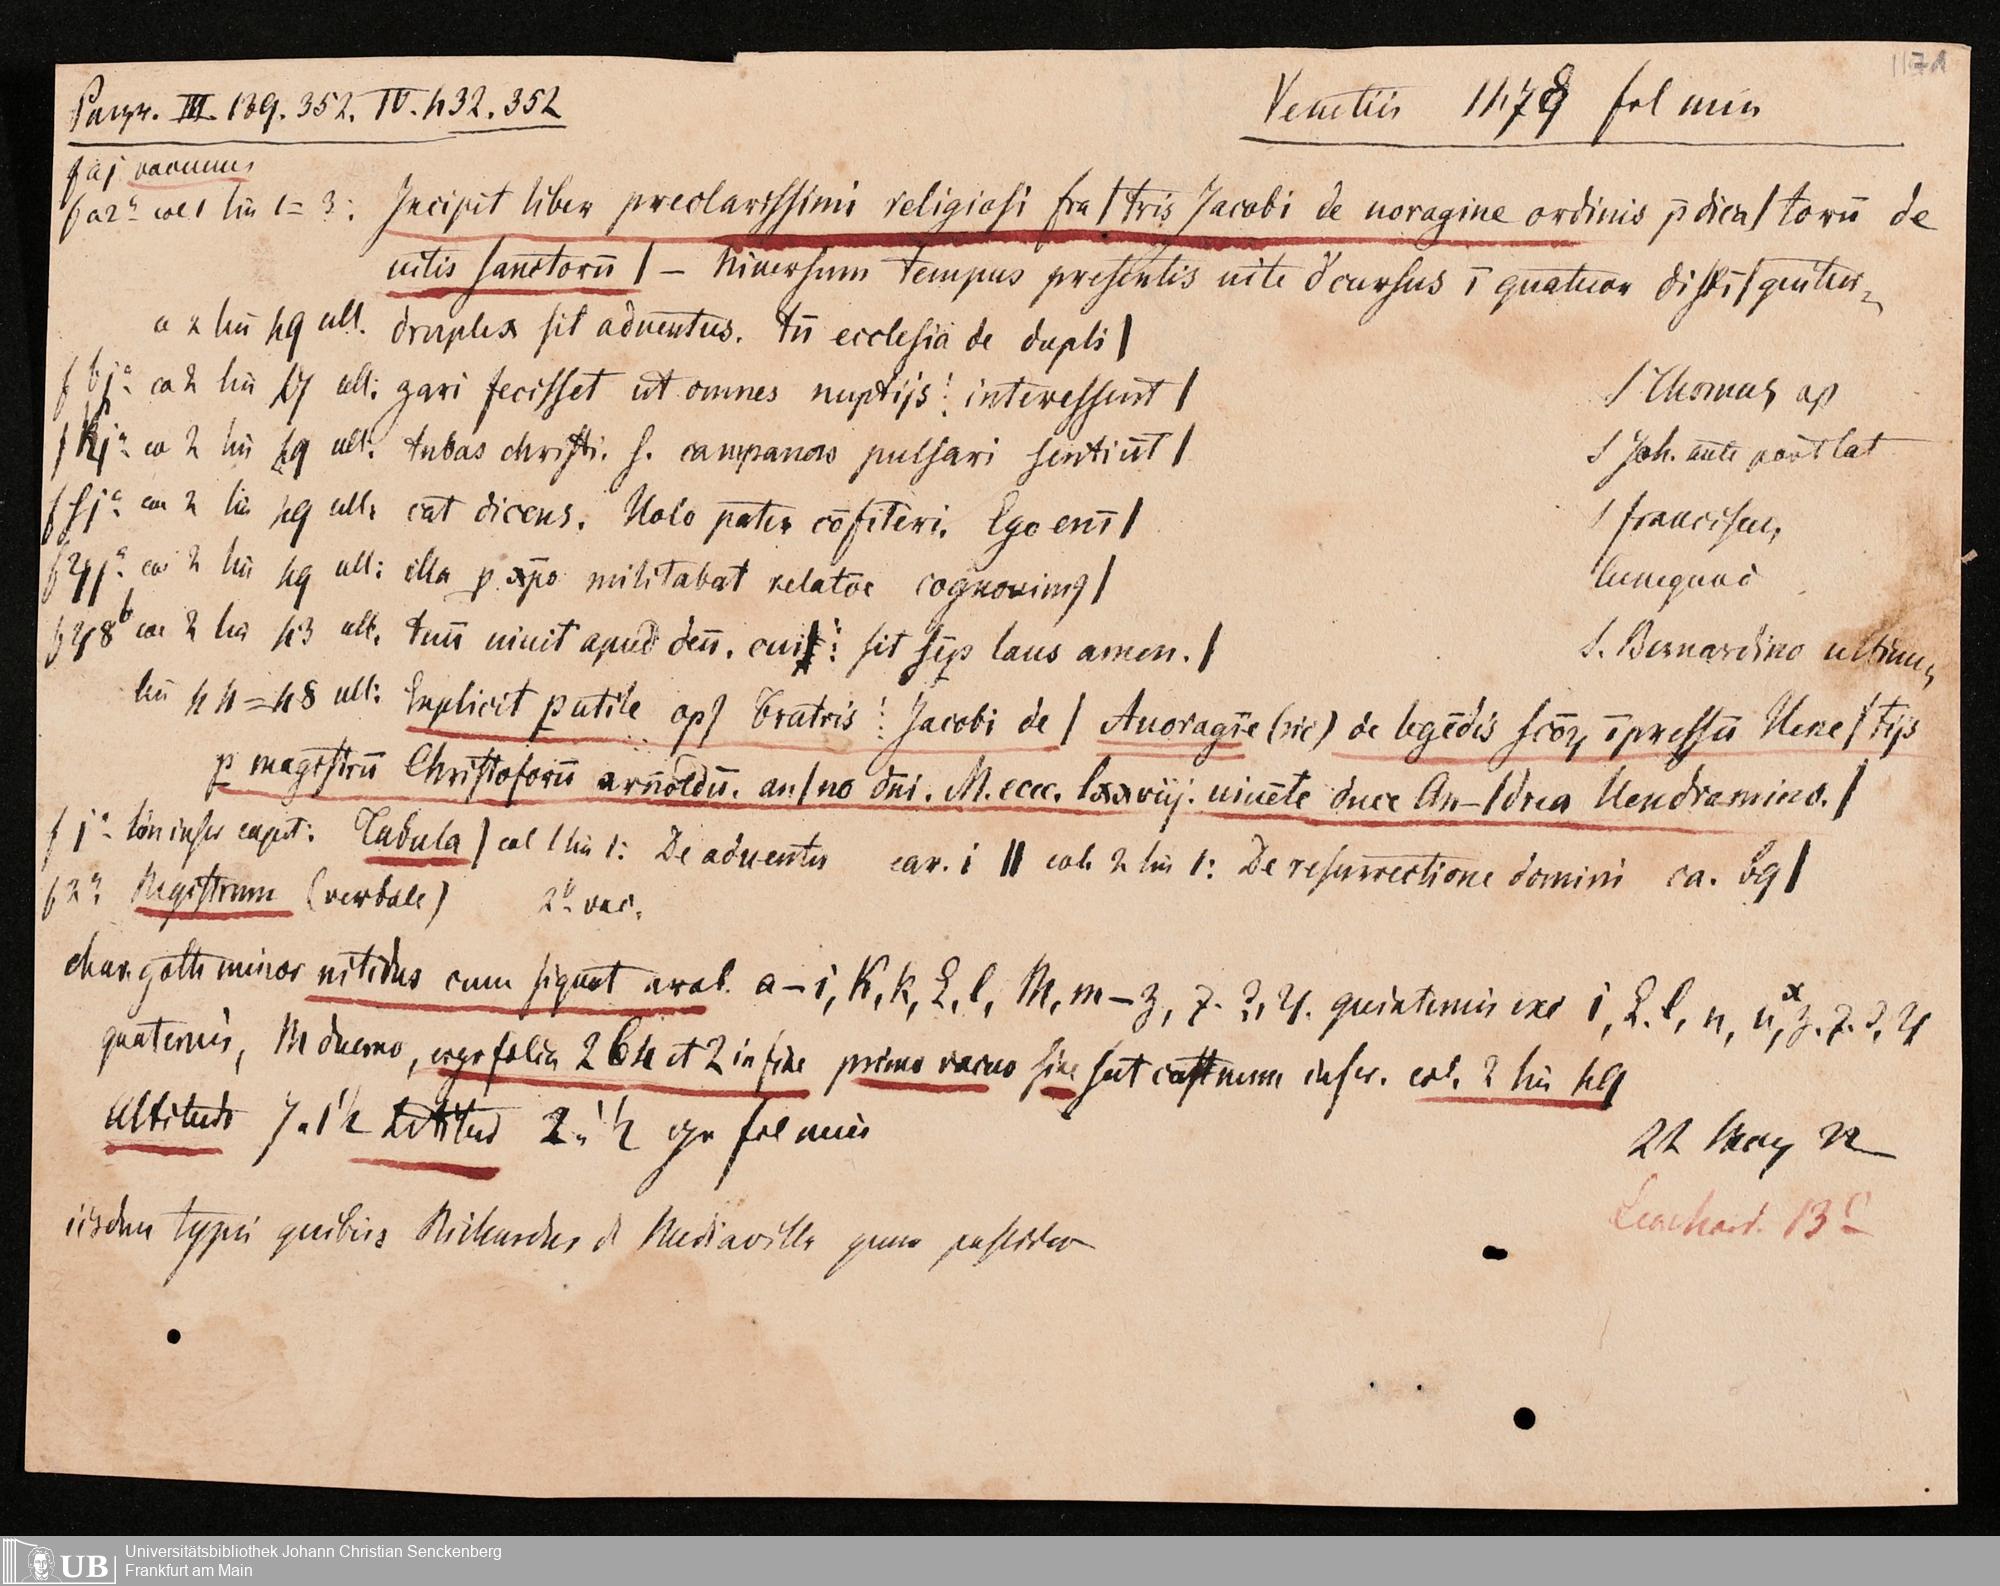 Panzr. III. 139. 352. IV. 432. 352
Venetiis 1478 fol min
f aj vacuus
f a2ª col 1 lin 1=3: Incipit liber preclarissimi religiosi fra/tris Jacobi de uoragine ordinis p̄dica/torū de
uitis sanctorū / – Niuersum tempus presentis uite
a 2 lin 49 ult. druplex sit aduentus. tn̄ ecclesia de dupli/
f bjª co 2 lin 47 ult: gari fecisset ut omnes nuptijs: interessent/
S Thomas ap
f Kjª co 2 lin 49 ult: tubas christi. s. campanas pulsari sentiūt/
S Joh. ante port lat
f sjª co 2 lin 49 ult: cat dicens. Uolo pater cōfiteri. Ego eni̅/
S franciscus
co 2 lin 49 ult: illa p xp̄o militabat relatōe cognouimꝯ/
co 2 lin 43 ult. tuū uiuit apud deū. cui: sit sēp laus amen./
S. Bernardino ultimus
lin 44=48 ult: Explicit putile opꝯ Fratris Jacobi de / Auoragīe (sic) de legēdis scōꝝ īpressū Uene/tijs
p magistrū Christoforū arnoldū. an/no dn̄i. M.cccc. lxxviij. uiuēte duce An–/drea Uendramino./
Tabula / col 1 lin 1: De aduentu car. i || col 2 lin 1: De resurrectione domini ca. 69/
f 2ª Registrum (verbale) 2b vac.
char. goth minor nitidus cum signat arab. a–i, K, k, L, l, M, m–z, quinternis exc i, L, l, n, u,
quaternis, M duerno, ergo folia 264 et 2 in fine primo vacuo sine col. 2 lin 49
Altitudo 7.1½ Latitud 2.½ ergo fol min
22 May
Leonhard. 13
iisdem typis quibus Richardus d Mediavilla quem possideo
1171
UB
Universitätsbibliothek Johann Christian Senckenberg
Frankfurt am Main